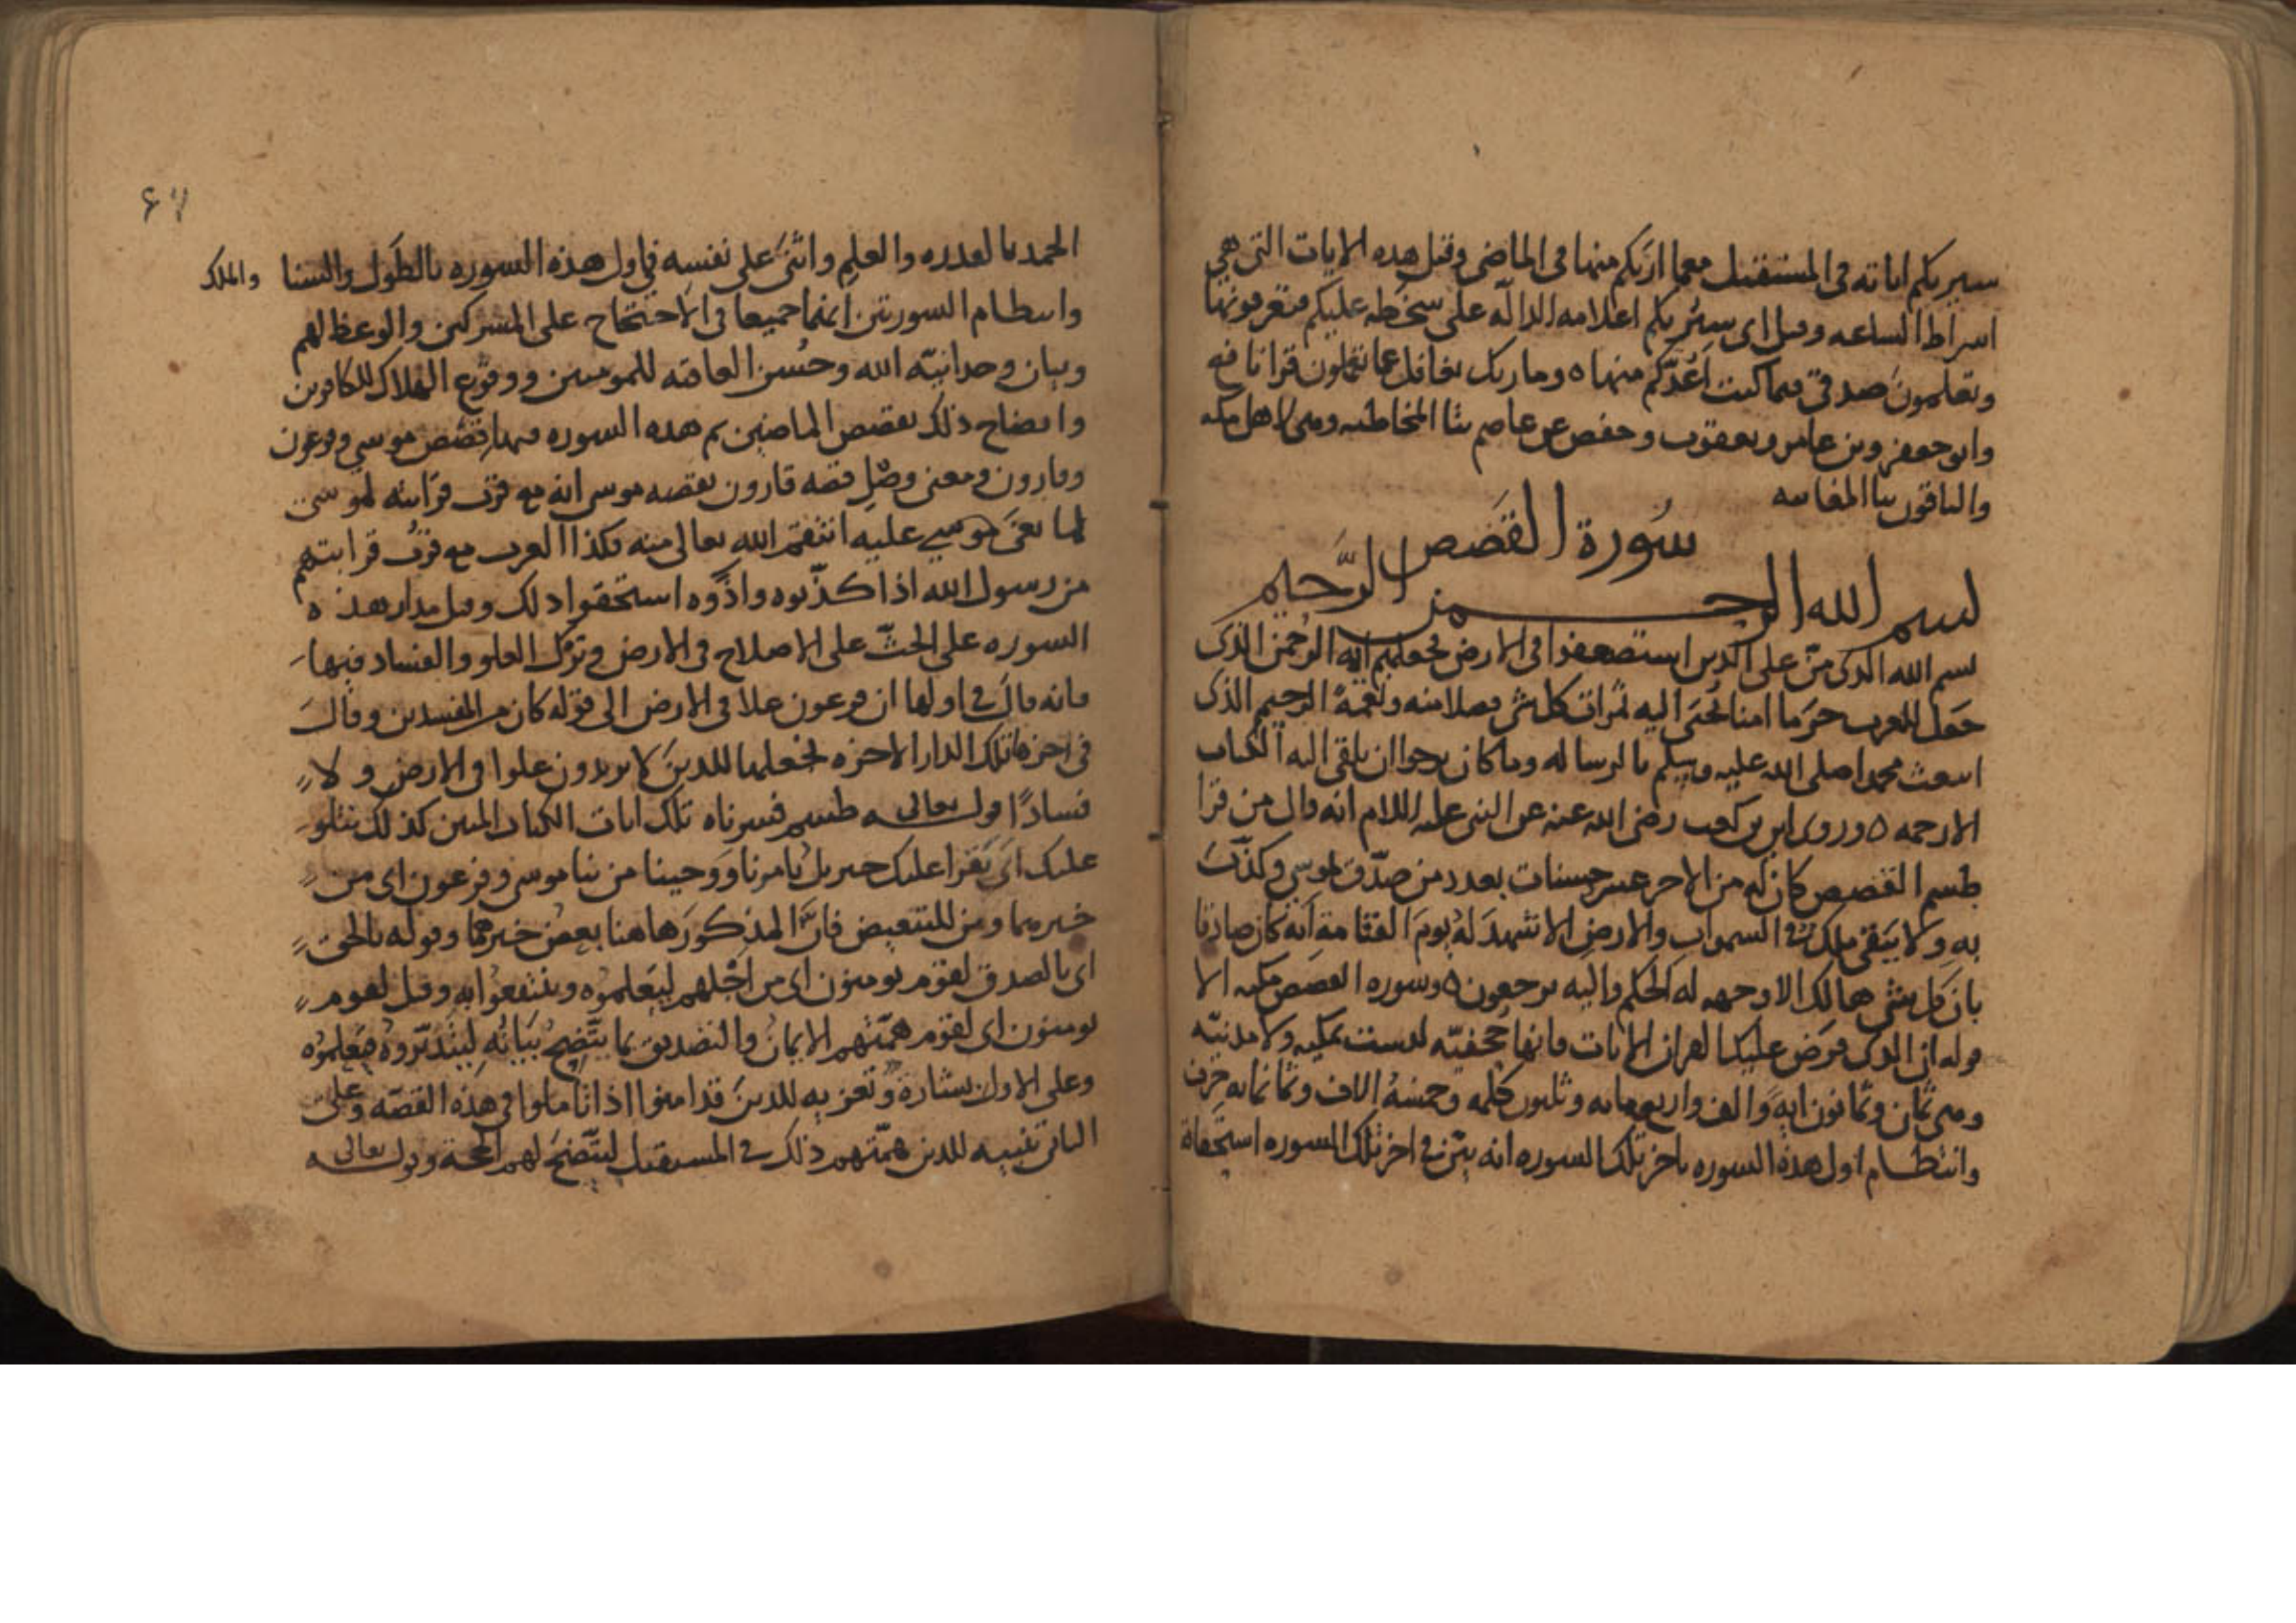 سيريكم اياته في المستقبل معما اريكم منها في الماضي وقيل هذه الايات التي هي
اشراط الساعه وقيل اي سيُريكم اعلامه الدالّة على سخطه عليكم فتعرفونها
وتعلمون صدقي فيما كنت اعُدّكم منها ٥ وما ربك بغافل عما تعملون قرا نافع
وابو جعفر وبن عامر ويعقوب وحفص عن عاصم بتا المخاطبه وهي لاهل مكه
والباقون بيا المغايبه
سُورة القَصَص
بسم الله الرحمن الرَّحيم
بسم الله الذي منّ على الذين استضعفوا في الارض فجعلهم ايمة الرحمن الذي
جعل للعرب حَرَما امنا تُجبَى اليه ثمرات كل شي فضلا منه ونعمة الرحيم الذي
ابتعث محمدا صلى الله عليه وسلم بالرساله وما كان يرجوا ان يلقى اليه الكتاب
الا رحمه ٥ وروى ابي بن كعب رضي الله عنه عن النبي عليه السلام انه قال من قرا
طسم القصص كان له من الاجر عشر حسنات بعدد من صدّق بموسى وكذّبَ
به ولا يبقى ملك في السموات والارض الا شهدَ لهُ يومَ القيامة انه كان صادقا
بان كل شي هالك الا وجهه له الحكم واليه ترجعون ٥ وسوره القصص مكيه الا
قوله ان الذي فرض عليك القران الايات فانها جُحفيّه ليست بمكيه ولا مدنيّه
وهي ثمان وثمانون ايه والف واربع مايه وثلثون كلمه وخمسهُ الاف وثمانمايه حرف
وانتظام اول هذه السوره باخر تلك السوره انه بيّن في اخر تلك السوره استحقاقه
٦٧
الحمد بالقدره والعلم واثنىَ على نفسه في اول هذه السوره بالطَول والسنا والملك
وانتظام السورتين انهما جميعا في الاحتجاح على المشركين والوعظ لهم
وبيان وحدانيّه الله وحُسن العاقبه للمومنين ووقوع الهلاك للكافرين
وايضاح ذلك بقصص الماضين ثم هذه السوره فيها قصص موسى وفرعون
وقارون ومعنى وصْلِ قصه قارون بقصه موسى انه مع قرب قرابته لموسى
لما بغىَ موسى عليه انتقم الله تعالى منه فكذا العرب مع قرُب قرابتهم
من رسول الله اذا كذّبوه واذَوه استحقوا ذلك وقيل مدار هذه
السوره على الحثّ على الاصلاح في الارض وترك العلو والفساد فيها
فانه قال في اولها ان فرعون علا في الارض الى قوله كان من المفسدين وقال
في اخرها تلك الدار الاخره نجعلها للذين لا يريدون علوا في الارض و لا
فسادًا قوله تعالى طسم فسرناه تلك ايات الكتاب المبين كذلك نتلو
عليك اي يَقرا عليك جبريل بامرنا وَوحينا من نبا موسى وفرعون اي من
خبرهما ومن للتبعيض فانَّ المذكورَ هاهنا بعضُ خبرهما وقوله بالحق
اي بالصدق لقوم يومنون اي من اجْلهم ليَعلموُه وينتفعوُا به وقيل لقوم
يومنون اي لقوم همّتهم الايمان والتصديق بما يتّضحُ بَيَانُه ليتدبّروهُ فيَعلموُه
وعلى الاول بشارة وتعزيه للذين قد امنوا اذا تاملوا في هذه القصّه وعلى
الثاني تنبيه للذين همّتهم ذلك في المستقبل ليتّضحَ لهم الحجة وقوله تعالى